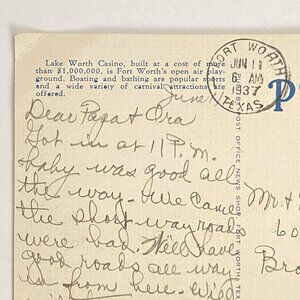 Lake Worth Casino, built at a cost of more
than $1,000,000, is Fort Worth's open air play-
ground. Boating and bathing are popular sports
and a wide variety of carnival attractions are
offered.
FORT WORTH
JUN 11
6 AM
1937
TEXAS
June
Dear Papa & Ora
Got in at 11 P.M.
baby was good all
the way - We came
the short way roads
were bad. Will have
good roads all way
in from here. Will
POST OFFICE NEWS SHOP FORT WORTH TEX
P
Mr. &
60
Bro